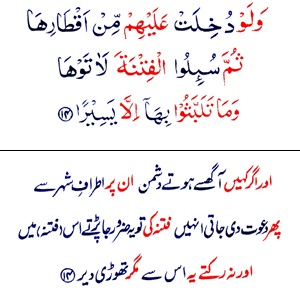 وَلَوْ دُخِلَتْ عَلَيْهِمْ مِّنْ اَقْطَارِهَا
ثُمَّ سُىِٕلُوا الْفِتْنَةَ لَاٰتَوْهَا
وَمَا تَلَبَّثُوْا بِهَاۤ اِلَّا يَسِيْرًا ﴿۱۴﴾
اور اگر کہیں آگھسے ہوتے دشمن ان پر اطرافِ شہر سے
پھر دعوت دی جاتی انہیں فتنہ کی تو یہ ضرور جا پڑتے اس (فتنہ) میں
اور نہ رکتے یہ اس سے مگر تھوڑی دیر ﴿۱۴﴾